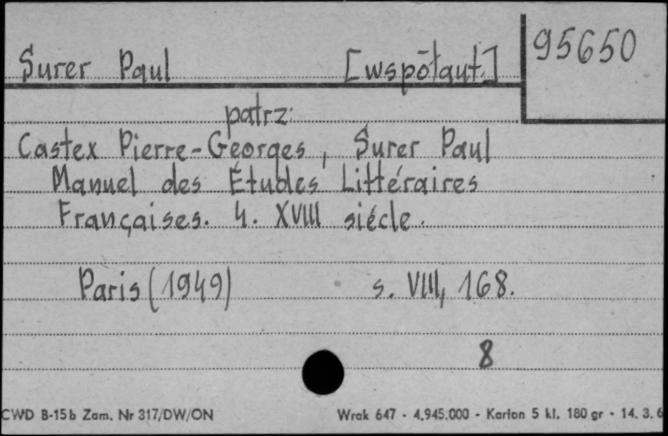 95650
Surer Paul [współaut.]
patrz:
Castex Pierre-Georges, Surer Paul
Manuel des Études Littéraires
Françaises. 4. XVIII siécle.
Paris (1949) s. VIII, 168.
8
CWD B-15b Zam. Nr 317/DW/ON Wrak 647 - 4.945.000 - Karton 5 kl. 180 gr - 14. 3. 6